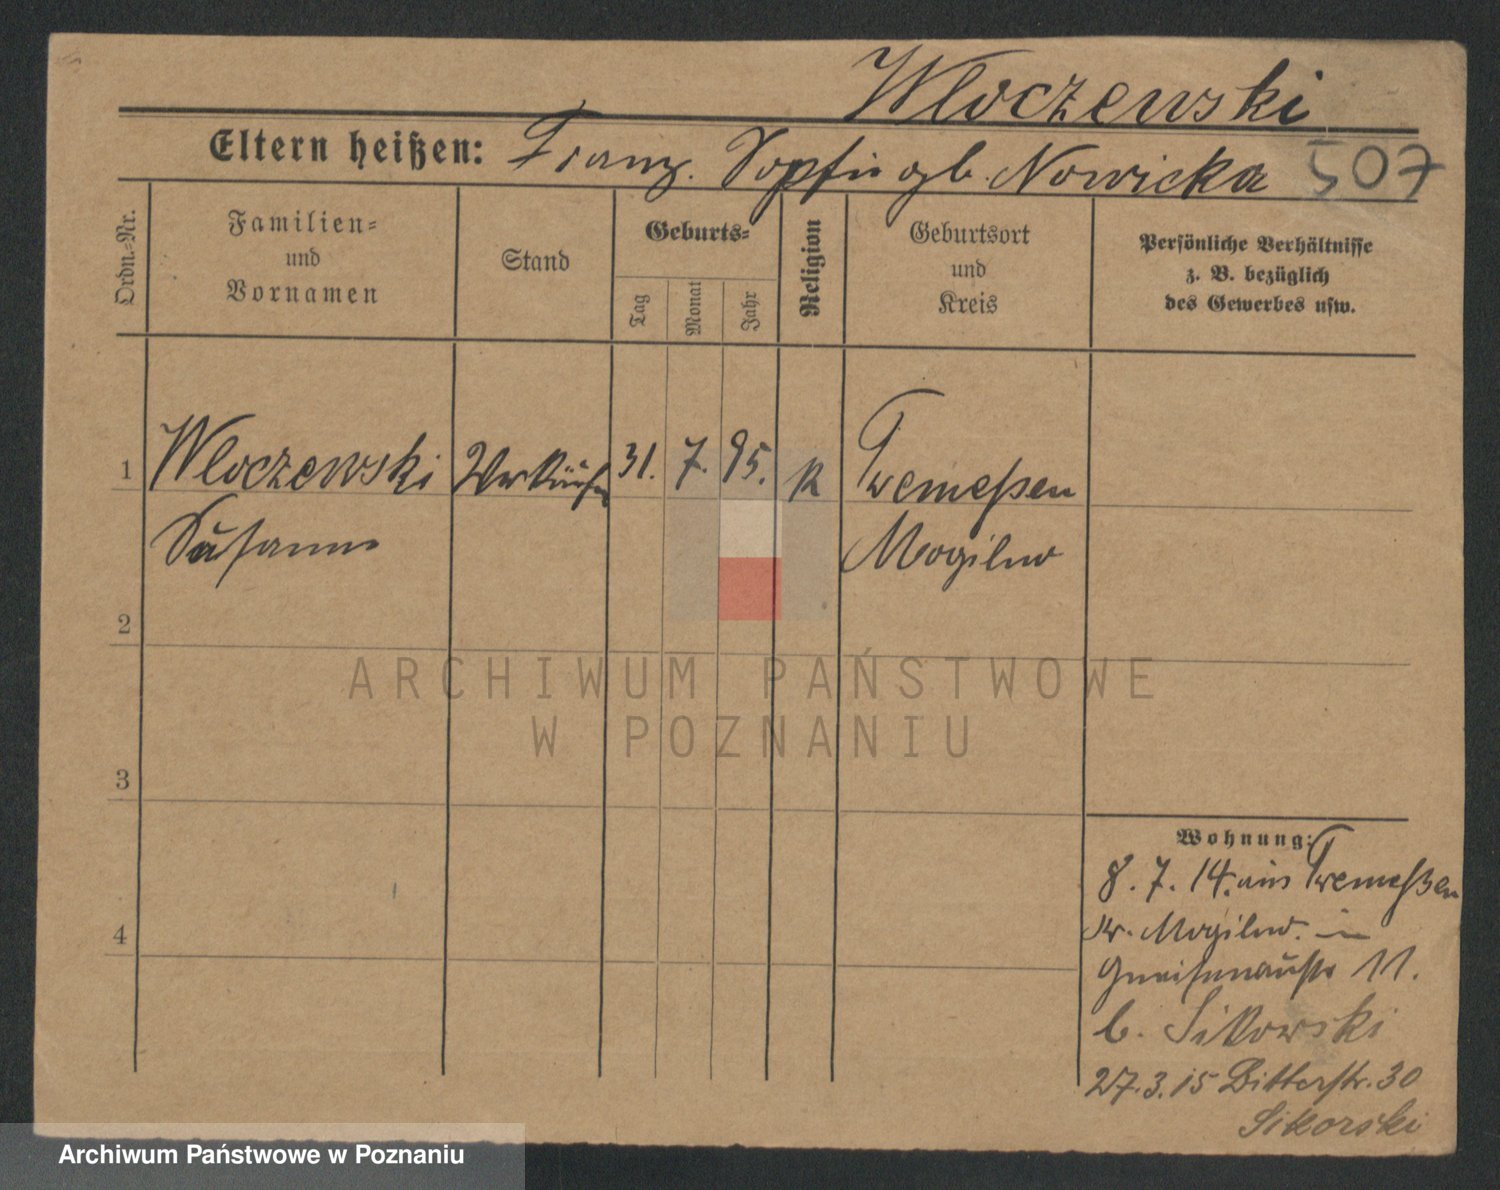 Wloczewski
Eltern heißen: Franz. Sophie gb. Nowicka 507
Ordn.=Nr.
Familien=
und
Vornamen
Stand
Geburts=
Tag
Monat
Jahr
Religion
Geburtsort
und
Kreis
Persönliche Verhältnisse
z. B. bezüglich
des Gewerbes usw.
1 Wloczewski 31. 7. 95. k Tremeßen
Susanna Mogilno
2
3
4
Wohnung:
8. 7. 14. aus Tremeßen
Kr. Mogilno. in
Gneisenaustr 11.
b. Sikorski
27.3.15 Ritterstr. 30
Sikorski
ARCHIWUM PAŃSTWOWE
W POZNANIU
Archiwum Państwowe w Poznaniu